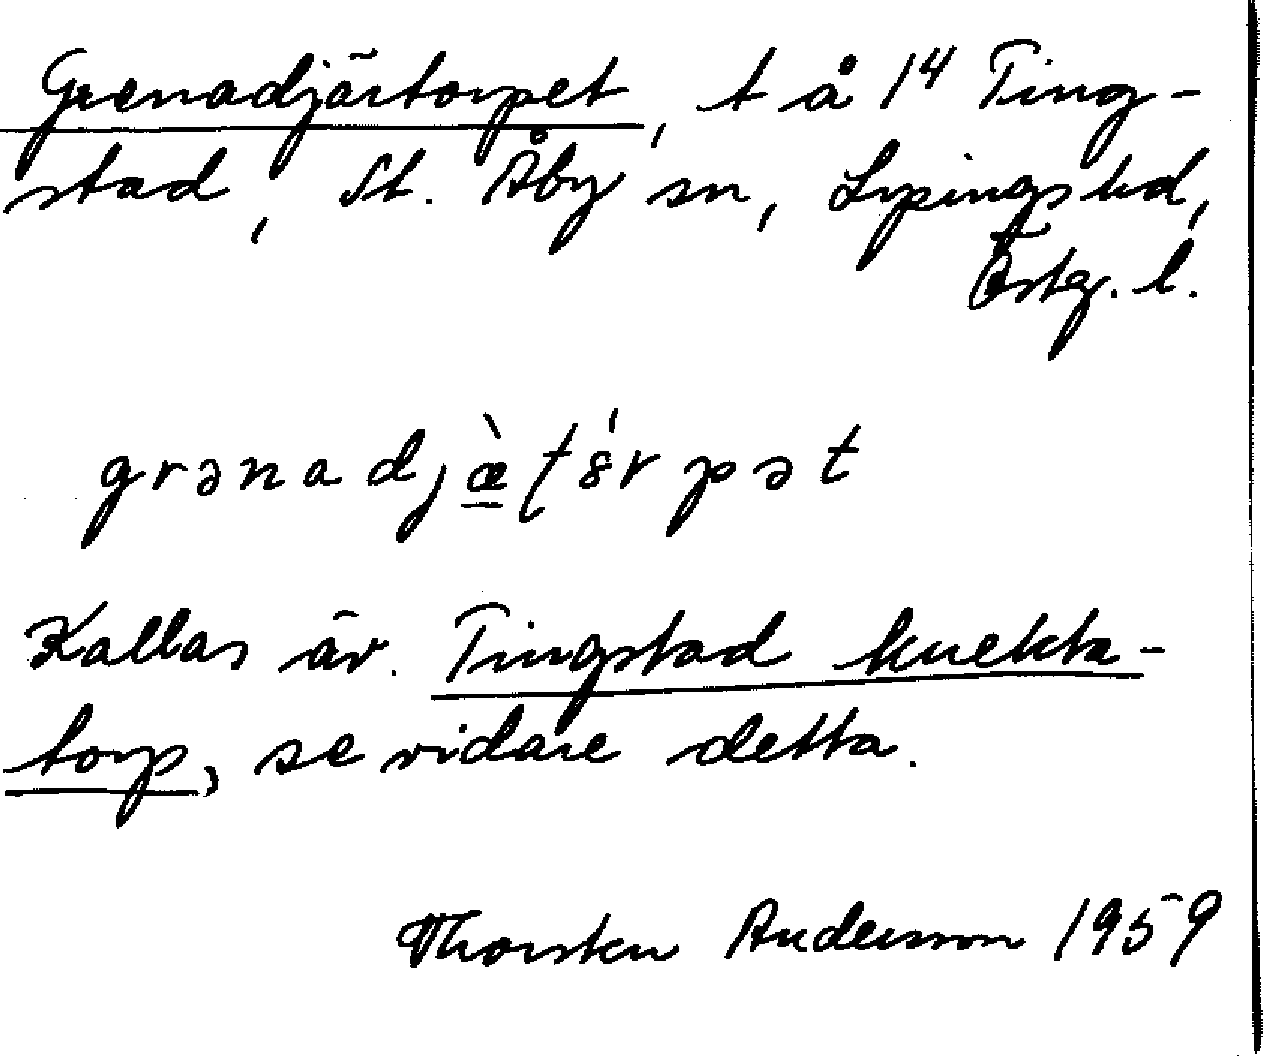 Grenadjärtorpet, t å 14 Ting-
stad, St. Åby sn, Lysings hd,
Östg. l.
grənadjæ̲̀ʈȣ́rpət
Kallas äv. Tingstad knekta-
torp, se vidare detta.
Thorsten Andersson 1959